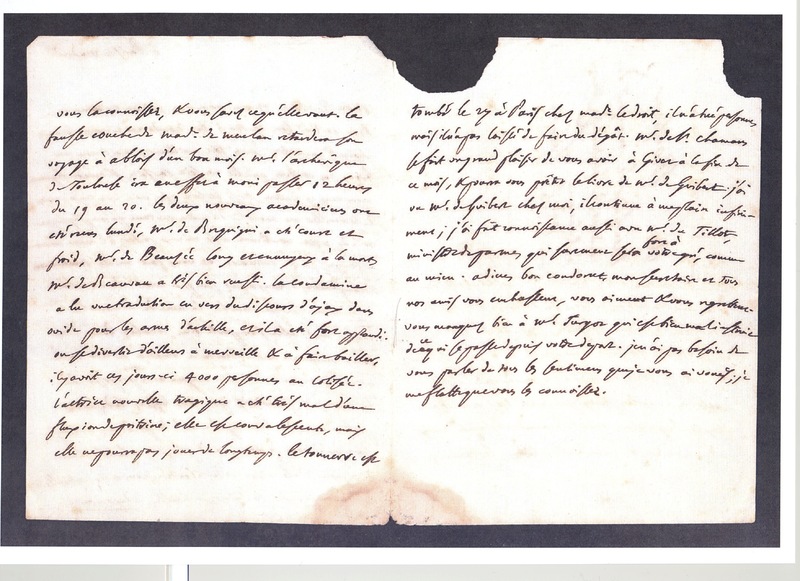 vous la connoissez, & vous savez ce qu'elle vaut. la
fausse couche de mad.e de meulan retardera son
voyage à ablois d'un bon mois. mr. l'archevêque
de Toulouse ira en effet à moni passer 12 heures
du 19 au 20. les deux nouveaux academiciens ont
été recus lundi, mr. de Roquigni a été court et
froid, mr. de Beauzée long et ennuyeux à la mort,
mr. de Beauvau a très bien reussi. la condamine
a lu une traduction en vers du discours d'ajax dans
ovide pour les armes d'achille, et il a été fort applaudi.
on se divertit d'ailleurs à merveille & à faire bailler,
il y avoit ces jours-ci 4000 personnes au colisée.
l'actrice nouvelle tragique a été très mal d'une
fluxion de poitrine; elle est convalescente, mais
elle ne pourra pas jouer de longtemps. le tonnerre est
tombé le 29 à Paris chez mad.e le droit, il n'a tué personne,
mais il n'a pas laissé de faire du dégât. mr. de St. chamans
se fait un grand plaisir de vous avoir à Givet à la fin de
ce mois, & pourra vous prêter le livre de mr. de Guibert. j'ai
vu mr. de Guibert chez moi, il continue à me plaire infini-
ment; j'ai fait connoissance aussi avec mr. du Tillot,
fort à
ministre de parme, qui surement sera votre gré, comme
au mien. adieu, bon condorcet, mon secretaire et tous
nos amis vous embrassent, vous aiment & vous regrettent.
vous manquez bien à mr. Turgot qui est bien mal instruit
de ce qui se passe depuis votre depart. je n'ai pas besoin de
vous parler de tous les sentimens que je vous ai voués; je
me flatte que vous les connoissez.